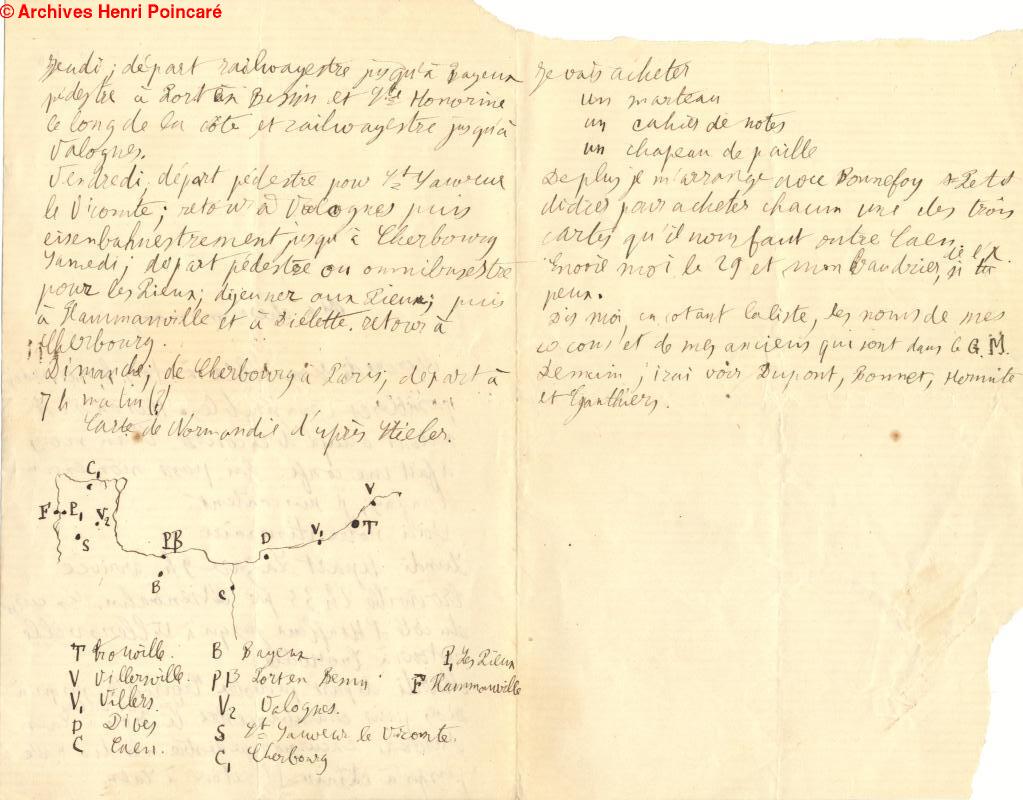 © Archives Henri Poincaré
Jeudi; départ railwayestre jusqu'à Bayeux
pédestre à Port en Bessin et Ste Honorine
le long de la côte et railwayestre jusqu'à
Valognes.
Vendredi, départ pédestre pour St Sauveur
le Vicomte; retour à Valognes puis
eisenbahnestrement jusqu'à Cherbourg
Samedi; départ pédestre ou omnibusestre
pour les Pieux; déjeuner aux Pieux; puis
à Flammanville et à Dielette. retour à
Cherbourg.
Dimanche; de Cherbourg à Paris; départ à
7h matin (?)
Carte de Normandie d'après Stieler.
C1
F P1 V2
S
PB
B
D
C
V1
V
T
T Trouville.
V Villerville.
V1 Villers.
D Dives
C Caen.
B Bayeux
PB Port en Bessin
V2 Valognes.
S St Sauveur le Vicomte.
C1 Cherbourg
P1 Les Pieux
F Flammanville
Je vais acheter
un marteau
un cahier de notes
un chapeau de paille
De plus je m'arrange avec Bonnefoy et Petit
didier pour acheter chacun une des trois
cartes qu'il nous faut outre Caen.
Envoie moi le 29 et mon baudrier, de l'X. si tu
peux.
Dis moi, en cotant la liste, les noms de mes
cocons et de mes anciens qui sont dans le G.M.
Demain j'irai voir Dupont, Bonnet, Hermite
et Gauthiers.